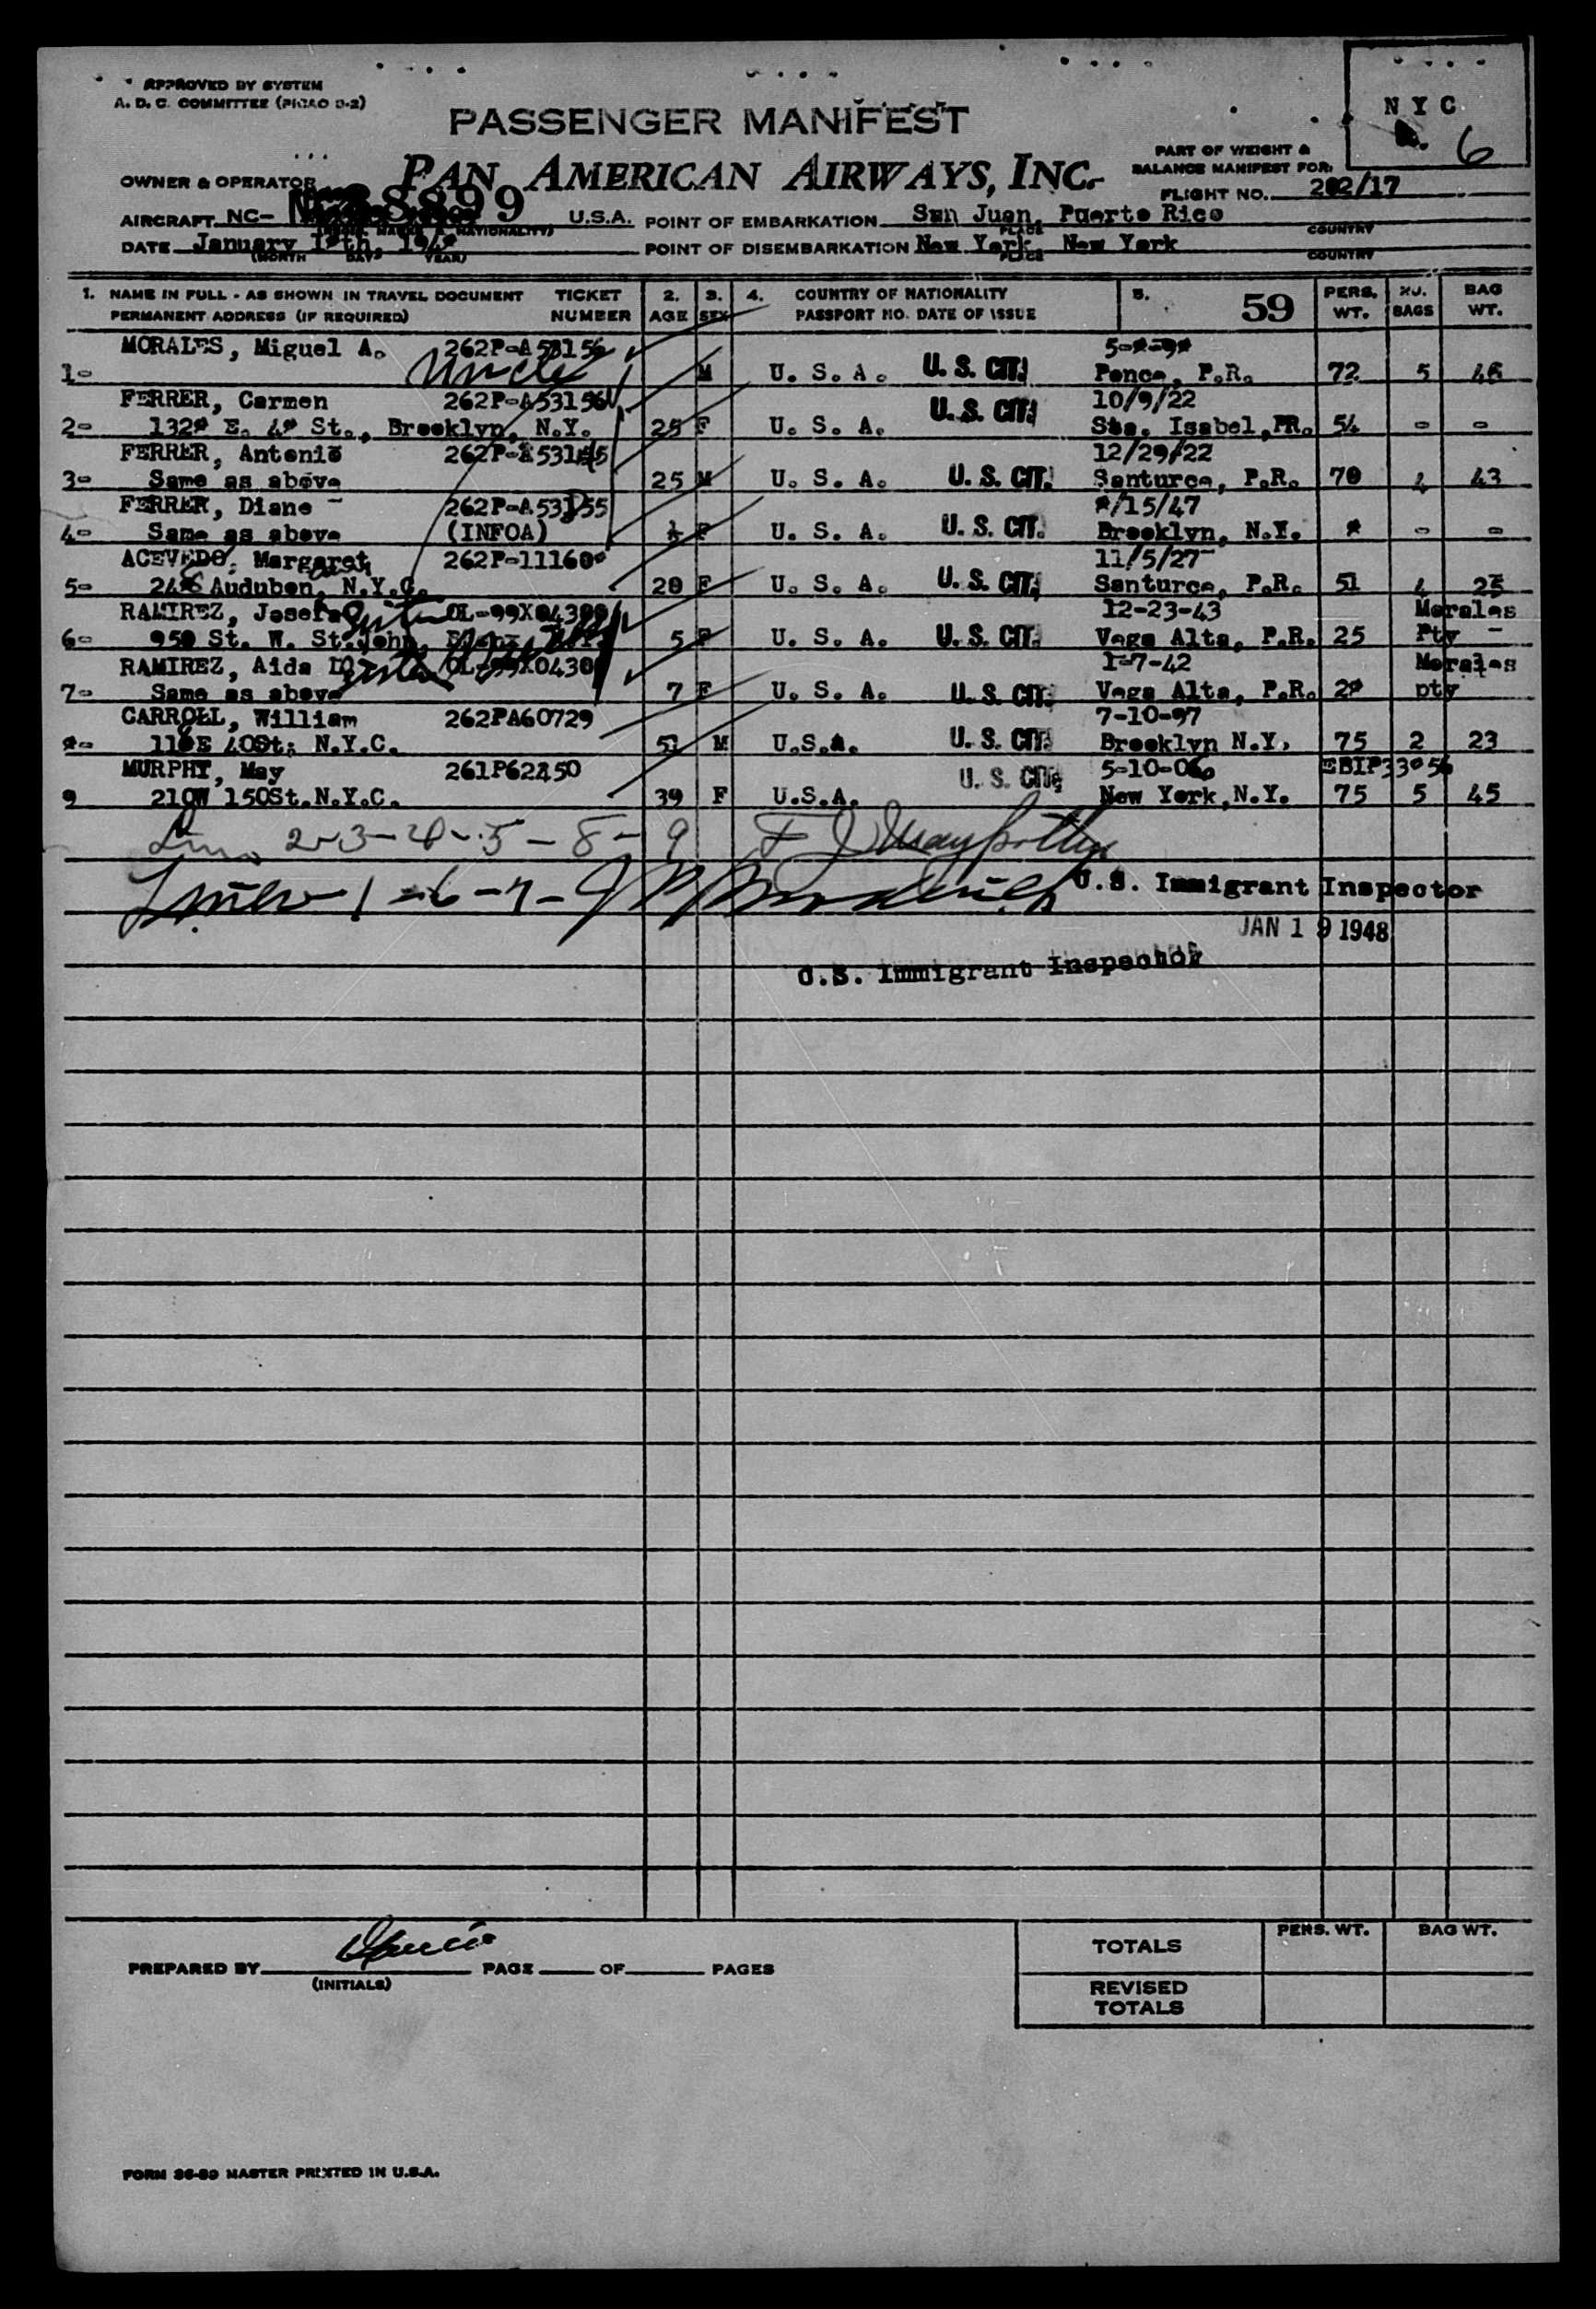 APPROVED BY SYSTEM
A. D. C. COMMITTEE (PICAO D-2)
PASSENGER MANIFEST
N Y C
6
OWNER & OPERATOR
PAN AMERICAN AIRWAYS, INC.
PART OF WEIGHT &
BALANCE MANIFEST FOR:
FLIGHT NO. 202/17
AIRCRAFT NC- 88899 U.S.A. POINT OF EMBARKATION San Juan, Puerto Rico
PLACE COUNTRY
DATE January
(MONTH DAY YEAR)
POINT OF DISEMBARKATION New York, New York
PLACE COUNTRY
1. NAME IN FULL - AS SHOWN IN TRAVEL DOCUMENT TICKET 2. 3. 4. COUNTRY OF NATIONALITY 5. 59 PERS. NO. BAG
PERMANENT ADDRESS (IF REQUIRED) NUMBER AGE SEX PASSPORT NO. DATE OF ISSUE WT. BAGS WT.
MORALES, Miguel A. 262P-A53156
1- Uncle M U. S. A. U. S. CIT. Ponce, P.R. 72 5 46
FERRER, Carmen 262P-A53156 10/9/22
2- E. St., Brooklyn, N.Y. 25 F U. S. A. U. S. CIT. Sta. Isabel, PR. 54 - -
FERRER, Antonio 12/29/22
3- Same as above 25 M U. S. A. U. S. CIT. Santurce, P.R. 70 4 43
FERRER, Diane 262P-A53155 /15/47
4- Same as above (INFOA) F U. S. A. U. S. CIT. Brooklyn, N.Y. - -
ACEVEDO, Margaret 11/5/27
5- Auduben, N.Y.C. 20 F U. S. A. U. S. CIT. Santurce, P.R. 51 4 25
RAMIREZ, Josefa 12-23-43 Morales
6- 950 St. W. St. John, 5 F U. S. A. U. S. CIT. Vega Alta, P.R. 25 Pty -
RAMIREZ, Aida 1-7-42 Morales
7- Same as above 7 F U. S. A. U. S. CIT. Vega Alta, P.R. pty
CARROLL, William 262PA60729 7-10-97
40St; N.Y.C. 51 M U.S.A. U. S. CIT. Brooklyn N.Y. 75 2 23
MURPHY, May 5-10-06
9 210W 150St.N.Y.C. 39 F U.S.A. U. S. CIT. New York, N.Y. 75 5 45
2-3-4-5-8-9
1-6-7-
U.S. Immigrant Inspector
JAN 19 1948
U.S. Immigrant Inspector
PERS. WT. BAG WT.
TOTALS
PREPARED BY PAGE OF PAGES
(INITIALS)
REVISED
TOTALS
FORM 36-89 MASTER PRINTED IN U.S.A.